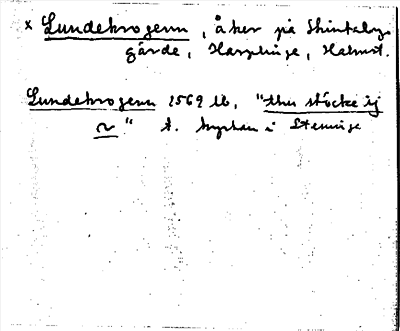 x Lundekrogenn, åker på Skintaby
gärde, Harplinge, Halmst.
Lundekrogenn 1569 lb, "thu stöcke ij
~" t. kyrkan i Steninge